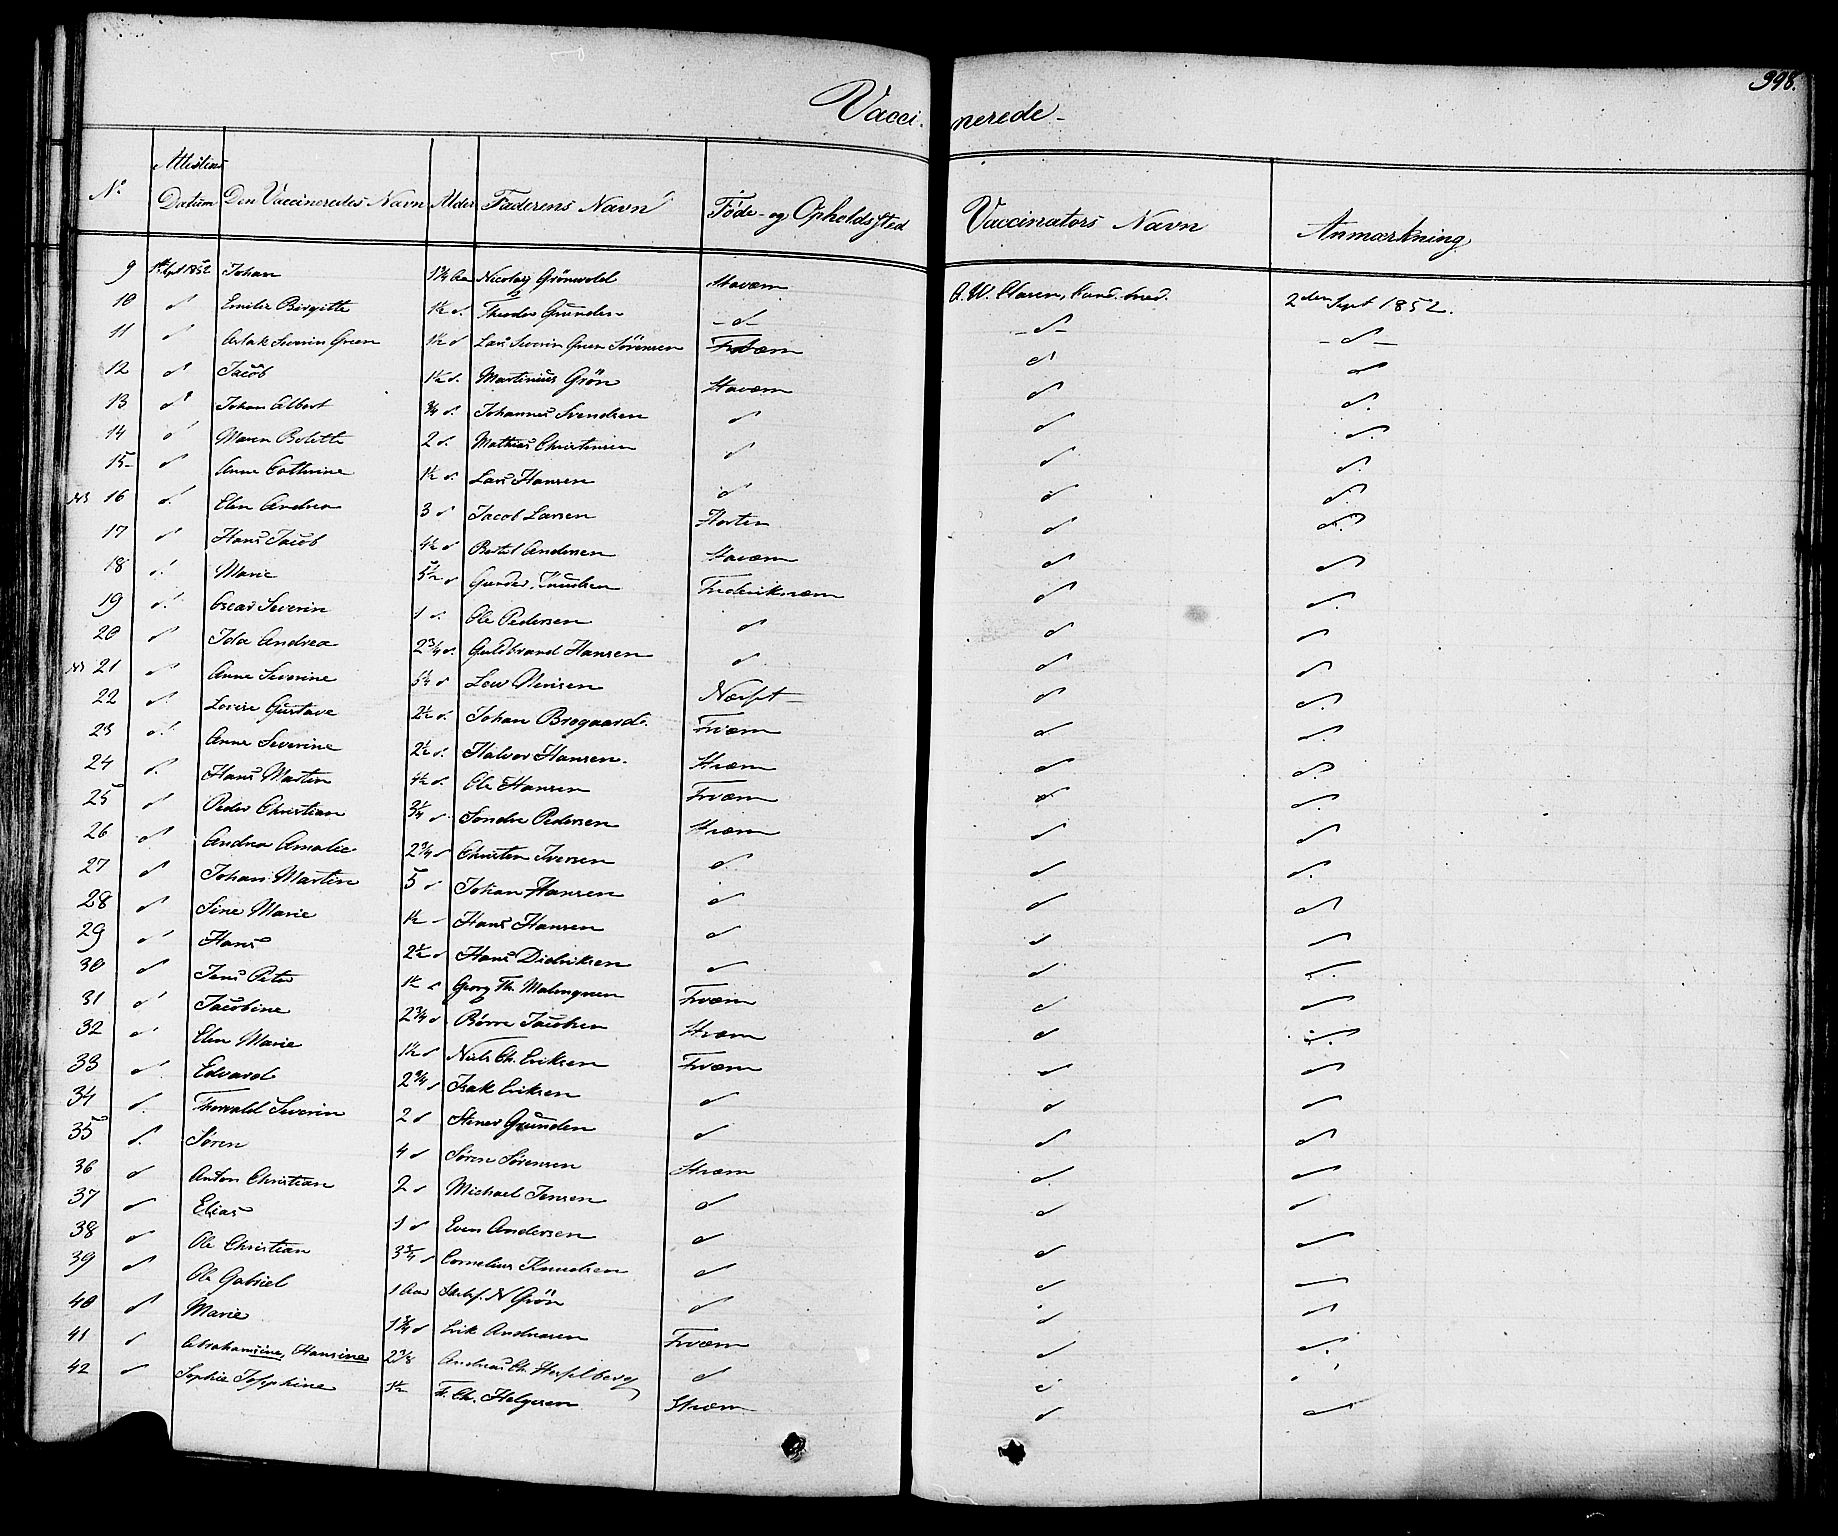 398.
Vaccinerede
No | Attestens Datum | Den Vaccineredes Navn | Alder | Faderens Navn | Føde- og Opholdssted | Vaccinators Navn | Anmærkning
9 | 1 Sept 1852 | Johan | 1¾ Aar | Nicolay Grönwold | Staværn | Cand. med. | 2den Sept 1852.
10 | d | Emilie Birgitte | 1½ d. | Theodor Gunder | -d- | -d- | -d-
11 | d | Aslak Severin Green | 1½ d | Lars Severin Green Sörensen | Frværn | d | d
12 | d | Jacob | 1½ d. | Martinius Grön | Staværn | d | d.
13 | d | Johan Albert | ¾ d. | Johannes Svendsen | d | d | d.
14 | d | Maren Bolette | 2 d. | Mathias Christensen | d | d | d.
15 | d | Anne Cathrine | 1½ d. | Lars Hansen | d | d | d.
NB 16 | d. | Elen Andrea | 3 d | Jacob Larsen | Horten | d | d.
17 | d | Hans Jacob | 4½ d | Bertel Andersen | Staværn | d | d
18 | d. | Marie | 5½ d | Gunder Knudsen | Frederiksværn | d | d.
19 | d. | Oscar Severin | 1 d. | Ole Pedersen | d | d | d
20 | d | Ida Andrea | 2¾ d. | Guldbrand Hansen | d | d | d
NB 21 | d | Anne Severine | 5½ d | | d | d.
22 | d. | Lovise Gustave | 2½ d. | Johan Brogaard. | Frværn | d | d.
23 | d. | Anne Severine | 2½ d. | Halvor Hansen. | Stværn | d | d.
24 | d. | Hans Martin | 4½ d. | Ole Hansen | Frværn | d | d.
25 | d | Peder Christian | 3¼ d. | Söndre Pedersen | Stværn | d | d
26 | d | Andrea Amalie | 2¾ d | Christen Iversen | d. | d | d.
27 | d | Johan Martin | 5 d | Johan Hansen | d | d | d
28 | d | Sine Marie | 1½ - | Hans Hansen | d | d | d
29 | d | Hans | 2½ d | Hans Didriksen | d | d | d
30 | d | Jens Peter | 1½ d | Georg Th. Malmgreen | Frværn | d | d
31 | d | Jacobine | 2¾ d | Börre Jacobsen | Stværn | d | d.
32 | d | Elen Marie | 1½ d | Niels Ch. Eriksen | Frværn | d | d
33 | d. | Edvard | 2¾ d | Isak Eriksen | d | d | d
34 | d. | Thorvald Severin | 2 d | Stener Gunden | d | d | d
35 | d. | Sören | 4 d | Sören Sörensen | Stværn | d | d
36 | d | Anton Christian | 2 d | Michael Jensen | d | d | d
37 | d | Elias | 1 d | Even Andersen | d | d | d
38 | d | Ole Christian | 3¾ d | Cornelius Knudsen | d | d | d
39 | d | Ole Gabriel | 1 Aar | N Grön | d | d | d
40 | d | Marie | 1¾ d | Erik Andreasen | Frværn | d | d.
41 | d | Abrahamine, Hansine | 2⅜ | Andreas Ch. Hesselberg | d
42 | d | Sophie Josephine | 1½ | F. Ch. Helgesen | Stværn | d | d